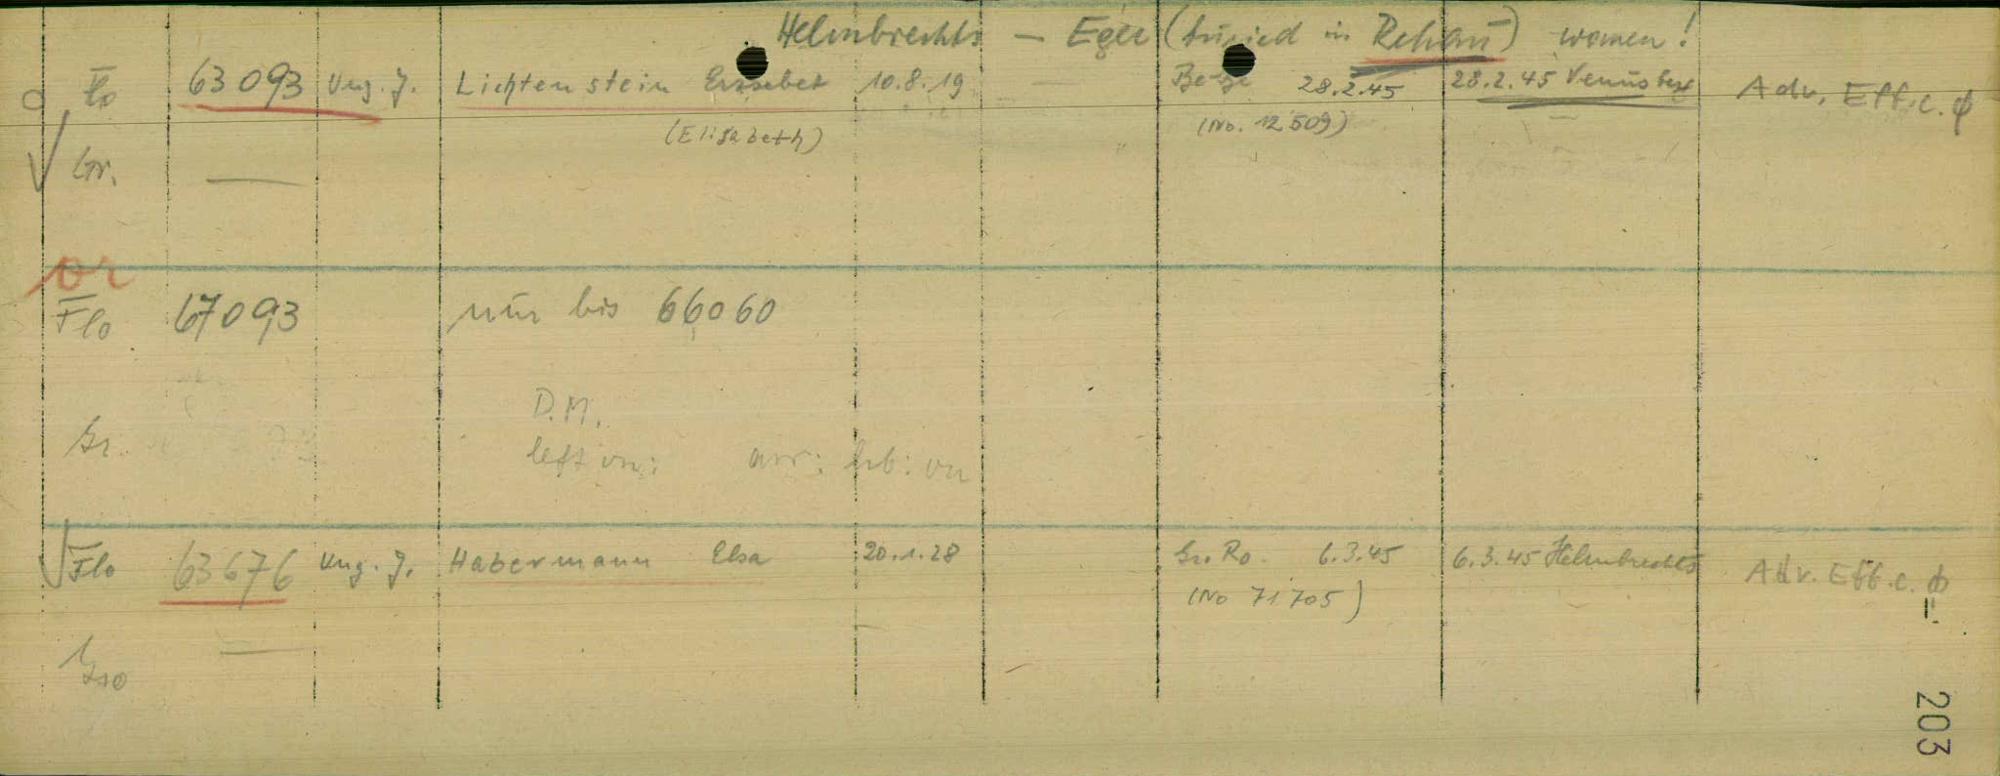 Helmbrechts - Eger (buried in Rehau) women!
Flo 63 093 Ung. J. Lichtenstein Erzsebet 10.8.19 — 28.2.45 28.2.45 Venusberg Adv. Eff. c. ф
(Elisabeth) (No. 12 509)
Gr. —
or
Flo 67093 nur bis 66060
Gr. D.M.
left on: arr: lib: on
Flo 63676 Ung. J. Habermann Elsa 20.1.28 Gr. Ro. 6.3.45 6.3.45 Helmbrechts Adv. Eff. c. ф
(No 71 705)
Gro —
203